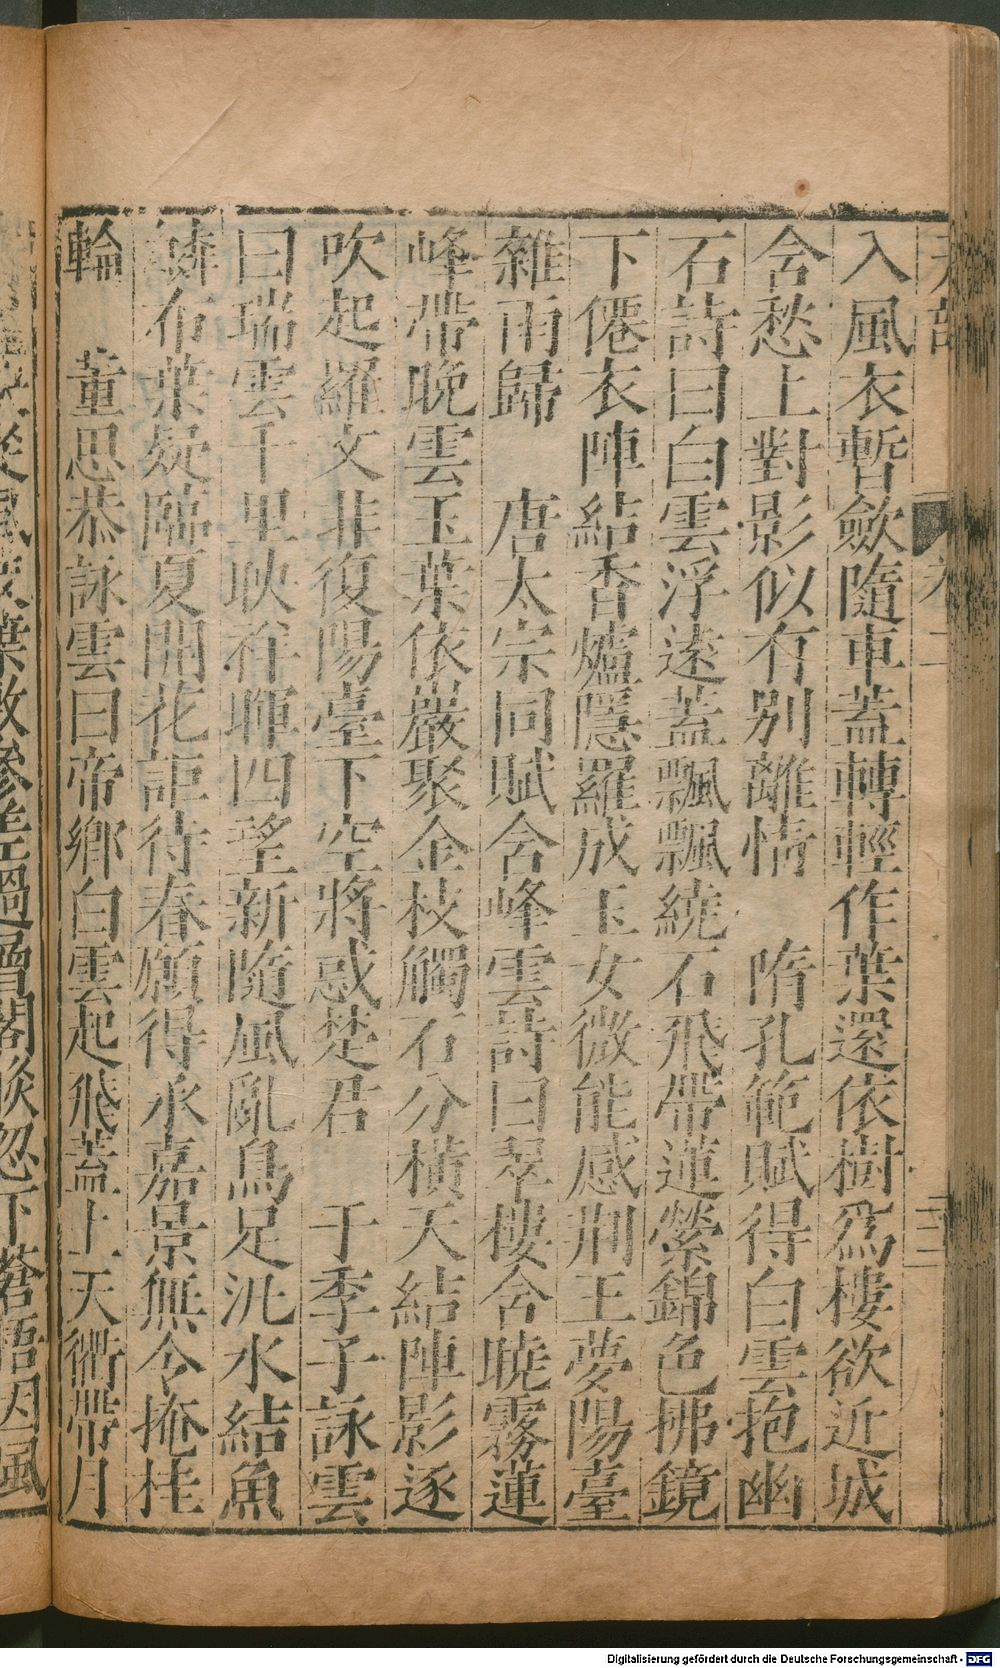 入風衣暫斂隨車蓋轉輕作葉還依樹爲樓欲近城
含愁上對影似有別離情　隋孔範賦得白雲抱幽
石詩曰白雲浮遠蓋飄飄繞石飛帶蓮縈錦色拂鏡
下僊衣陣結香爐隱羅成玉女微能感荆王夢陽臺
雜雨歸　唐太宗同賦含峰雲詩曰翠樓含曉霧蓮
峰帶晚雲玉葉依巖聚金枝觸石分橫天結陣影逐
吹起羅文非復陽臺下空將惑楚君　于季子詠雲
曰瑞雲千里映祥暉四望新隨風亂鳥足汎水結魚
鱗布葉疑臨夏開花詎待春願得承嘉景無令掩桂
輪　董思恭詠雲曰帝鄉白雲起飛蓋上天衢帶月
Digitalisierung gefördert durch die Deutsche Forschungsgemeinschaft - DFG